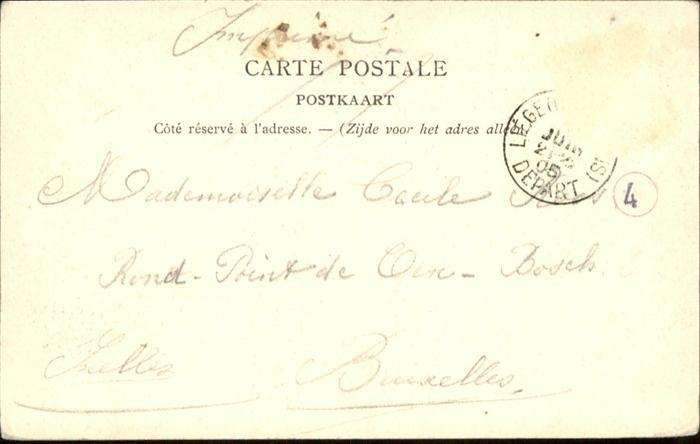 Imprimé
CARTE POSTALE
POSTKAART
Côté réservé à l'adresse. — (Zijde voor het adres alleen
LIÉGE
JUIN
05
DEPART (S)
Mademoiselle Cécile
4
Rond-Point de Oen-Bosch.
Ixelles
Bruxelles.